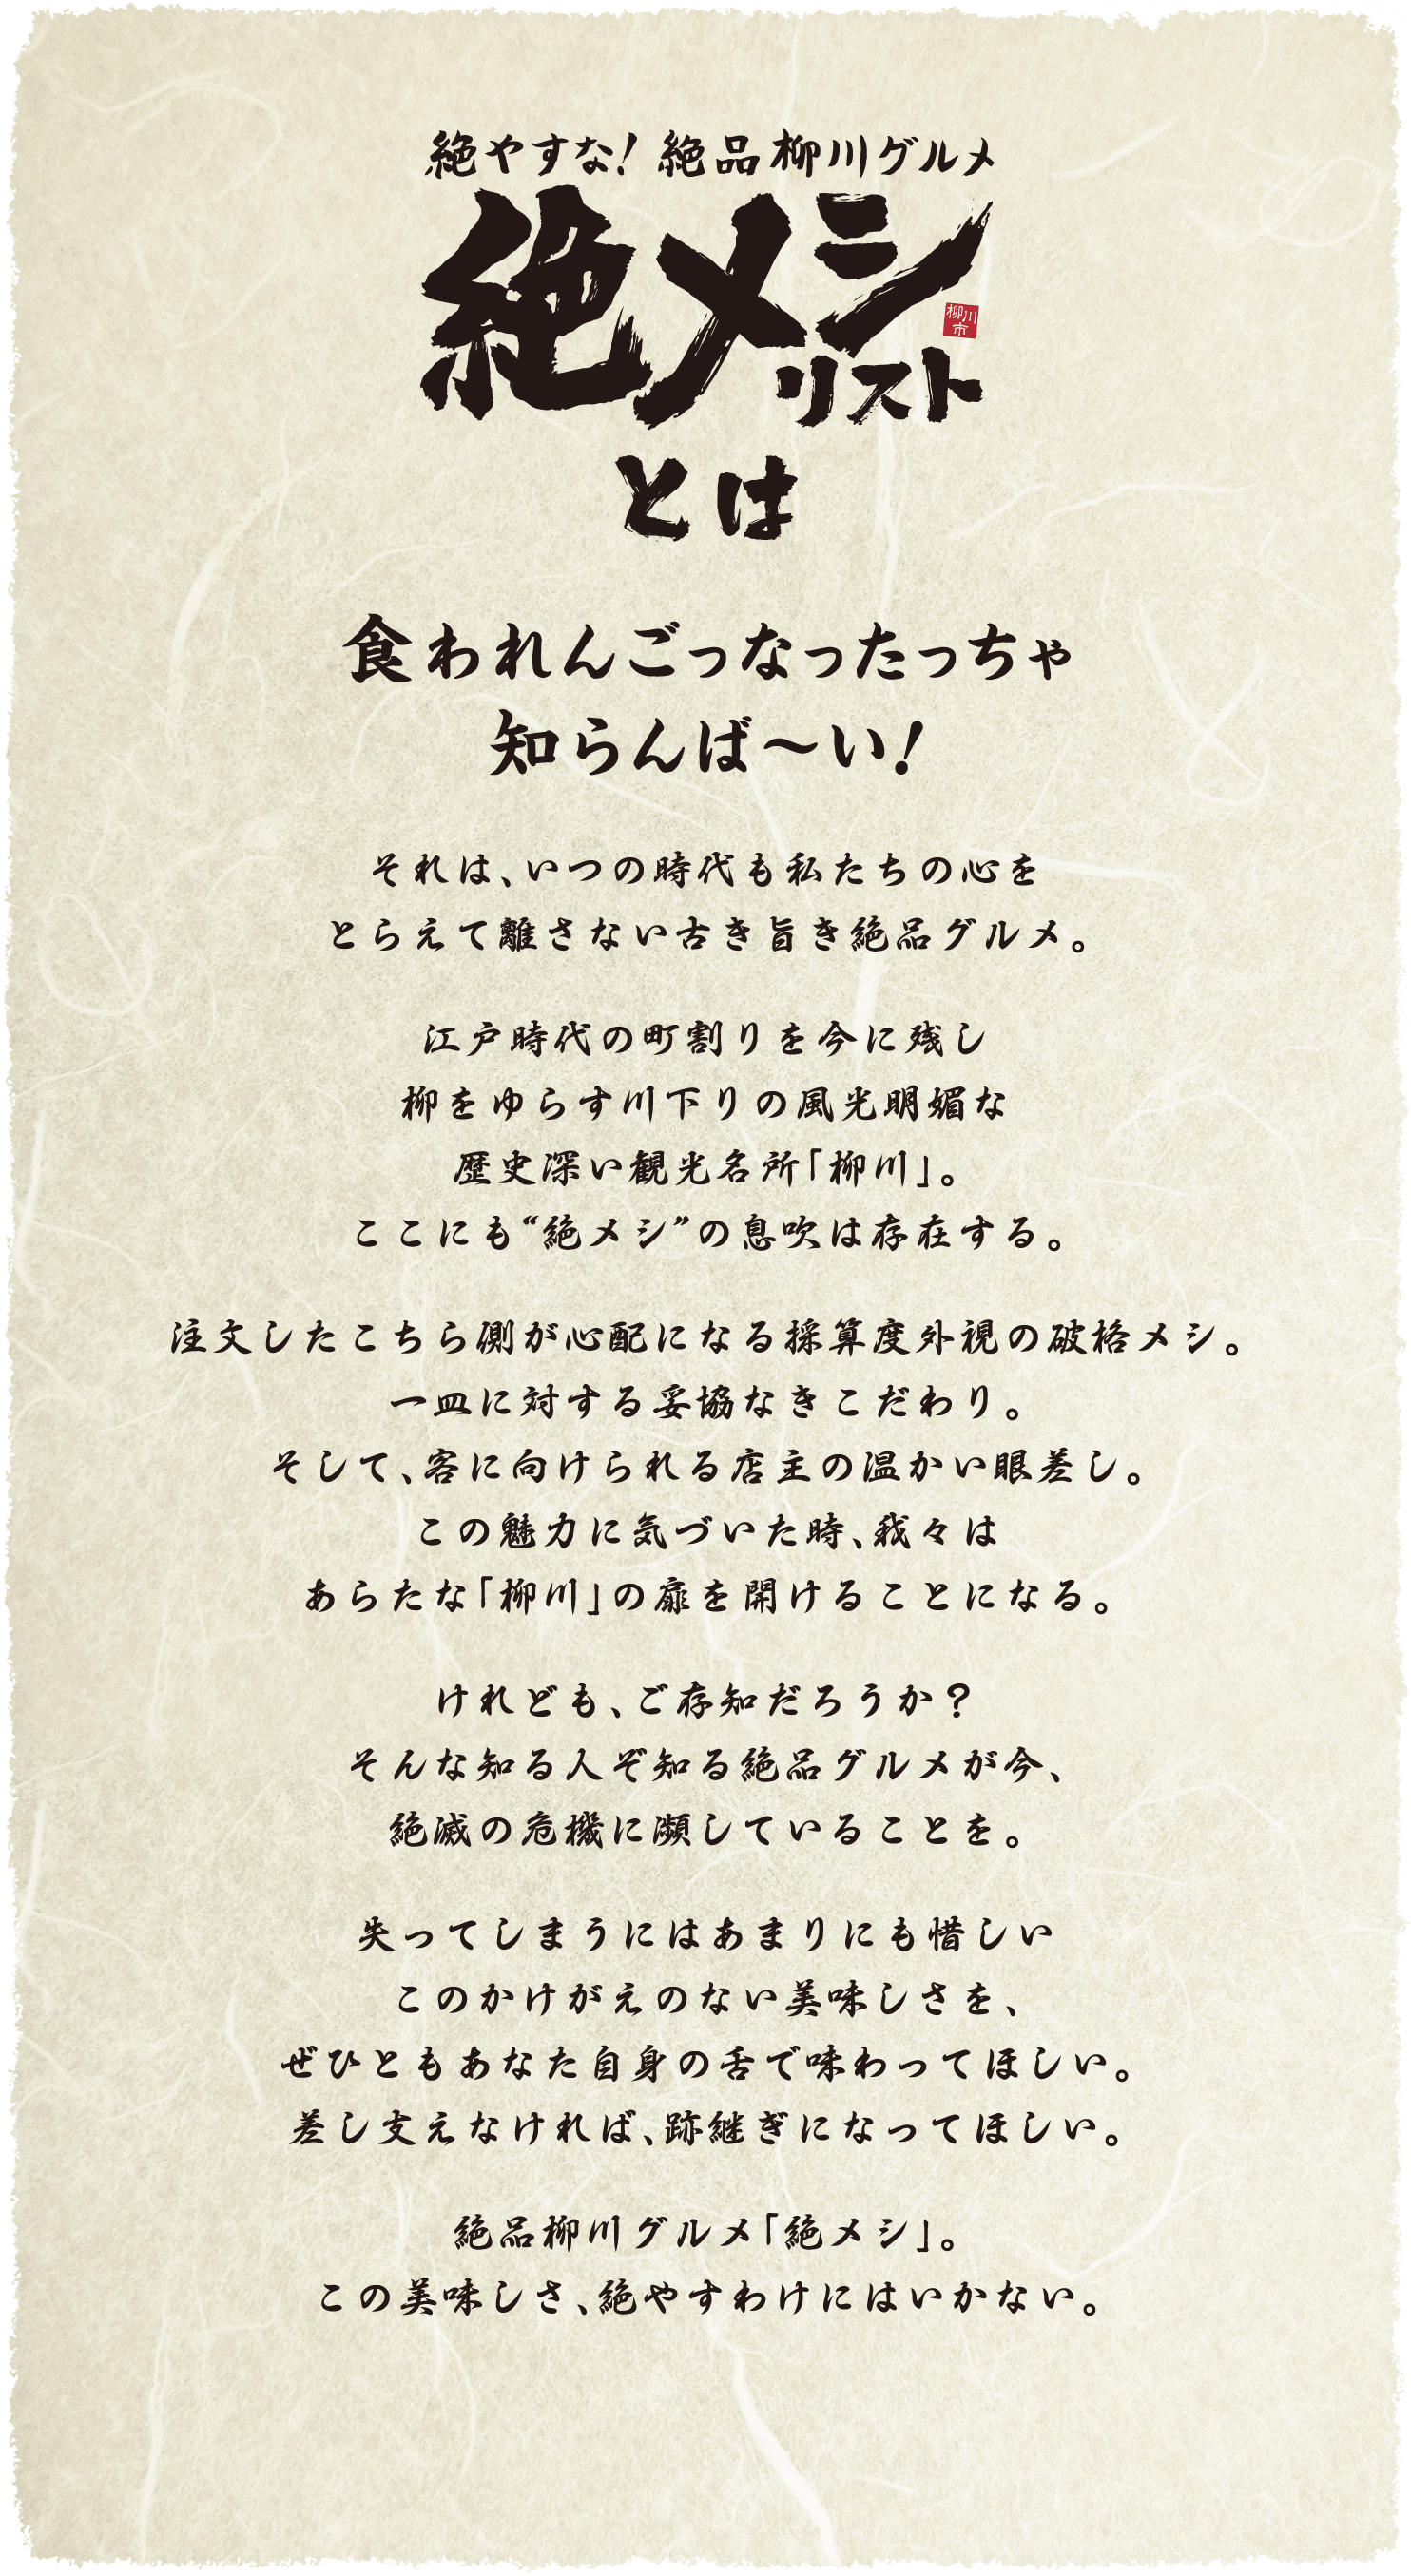 絶やすな！絶品柳川グルメ
絶メシ
柳川
市
リスト
とは
食われんごっなったっちゃ
知らんば〜い！
それは、いつの時代も私たちの心を
とらえて離さない古き旨き絶品グルメ。
江戸時代の町割りを今に残し
柳をゆらす川下りの風光明媚な
歴史深い観光名所「柳川」。
ここにも“絶メシ”の息吹は存在する。
注文したこちら側が心配になる採算度外視の破格メシ。
一皿に対する妥協なきこだわり。
そして、客に向けられる店主の温かい眼差し。
この魅力に気づいた時、我々は
あらたな「柳川」の扉を開けることになる。
けれども、ご存知だろうか？
そんな知る人ぞ知る絶品グルメが今、
絶滅の危機に瀕していることを。
失ってしまうにはあまりにも惜しい
このかけがえのない美味しさを、
ぜひともあなた自身の舌で味わってほしい。
差し支えなければ、跡継ぎになってほしい。
絶品柳川グルメ「絶メシ」。
この美味しさ、絶やすわけにはいかない。